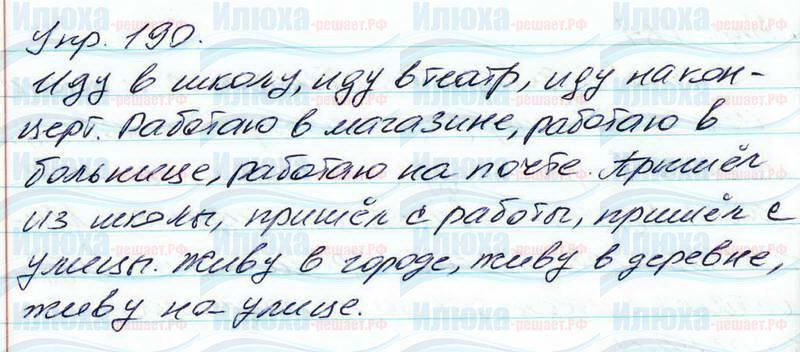 Упр. 190.
Иду в школу, иду в театр, иду на кон-
церт. Работаю в магазине, работаю в
больнице, работаю на почте. Пришёл
из школы, пришёл с работы, пришёл с
улицы. Живу в городе, живу в деревне,
живу на улице.
Илюха-решает.РФ